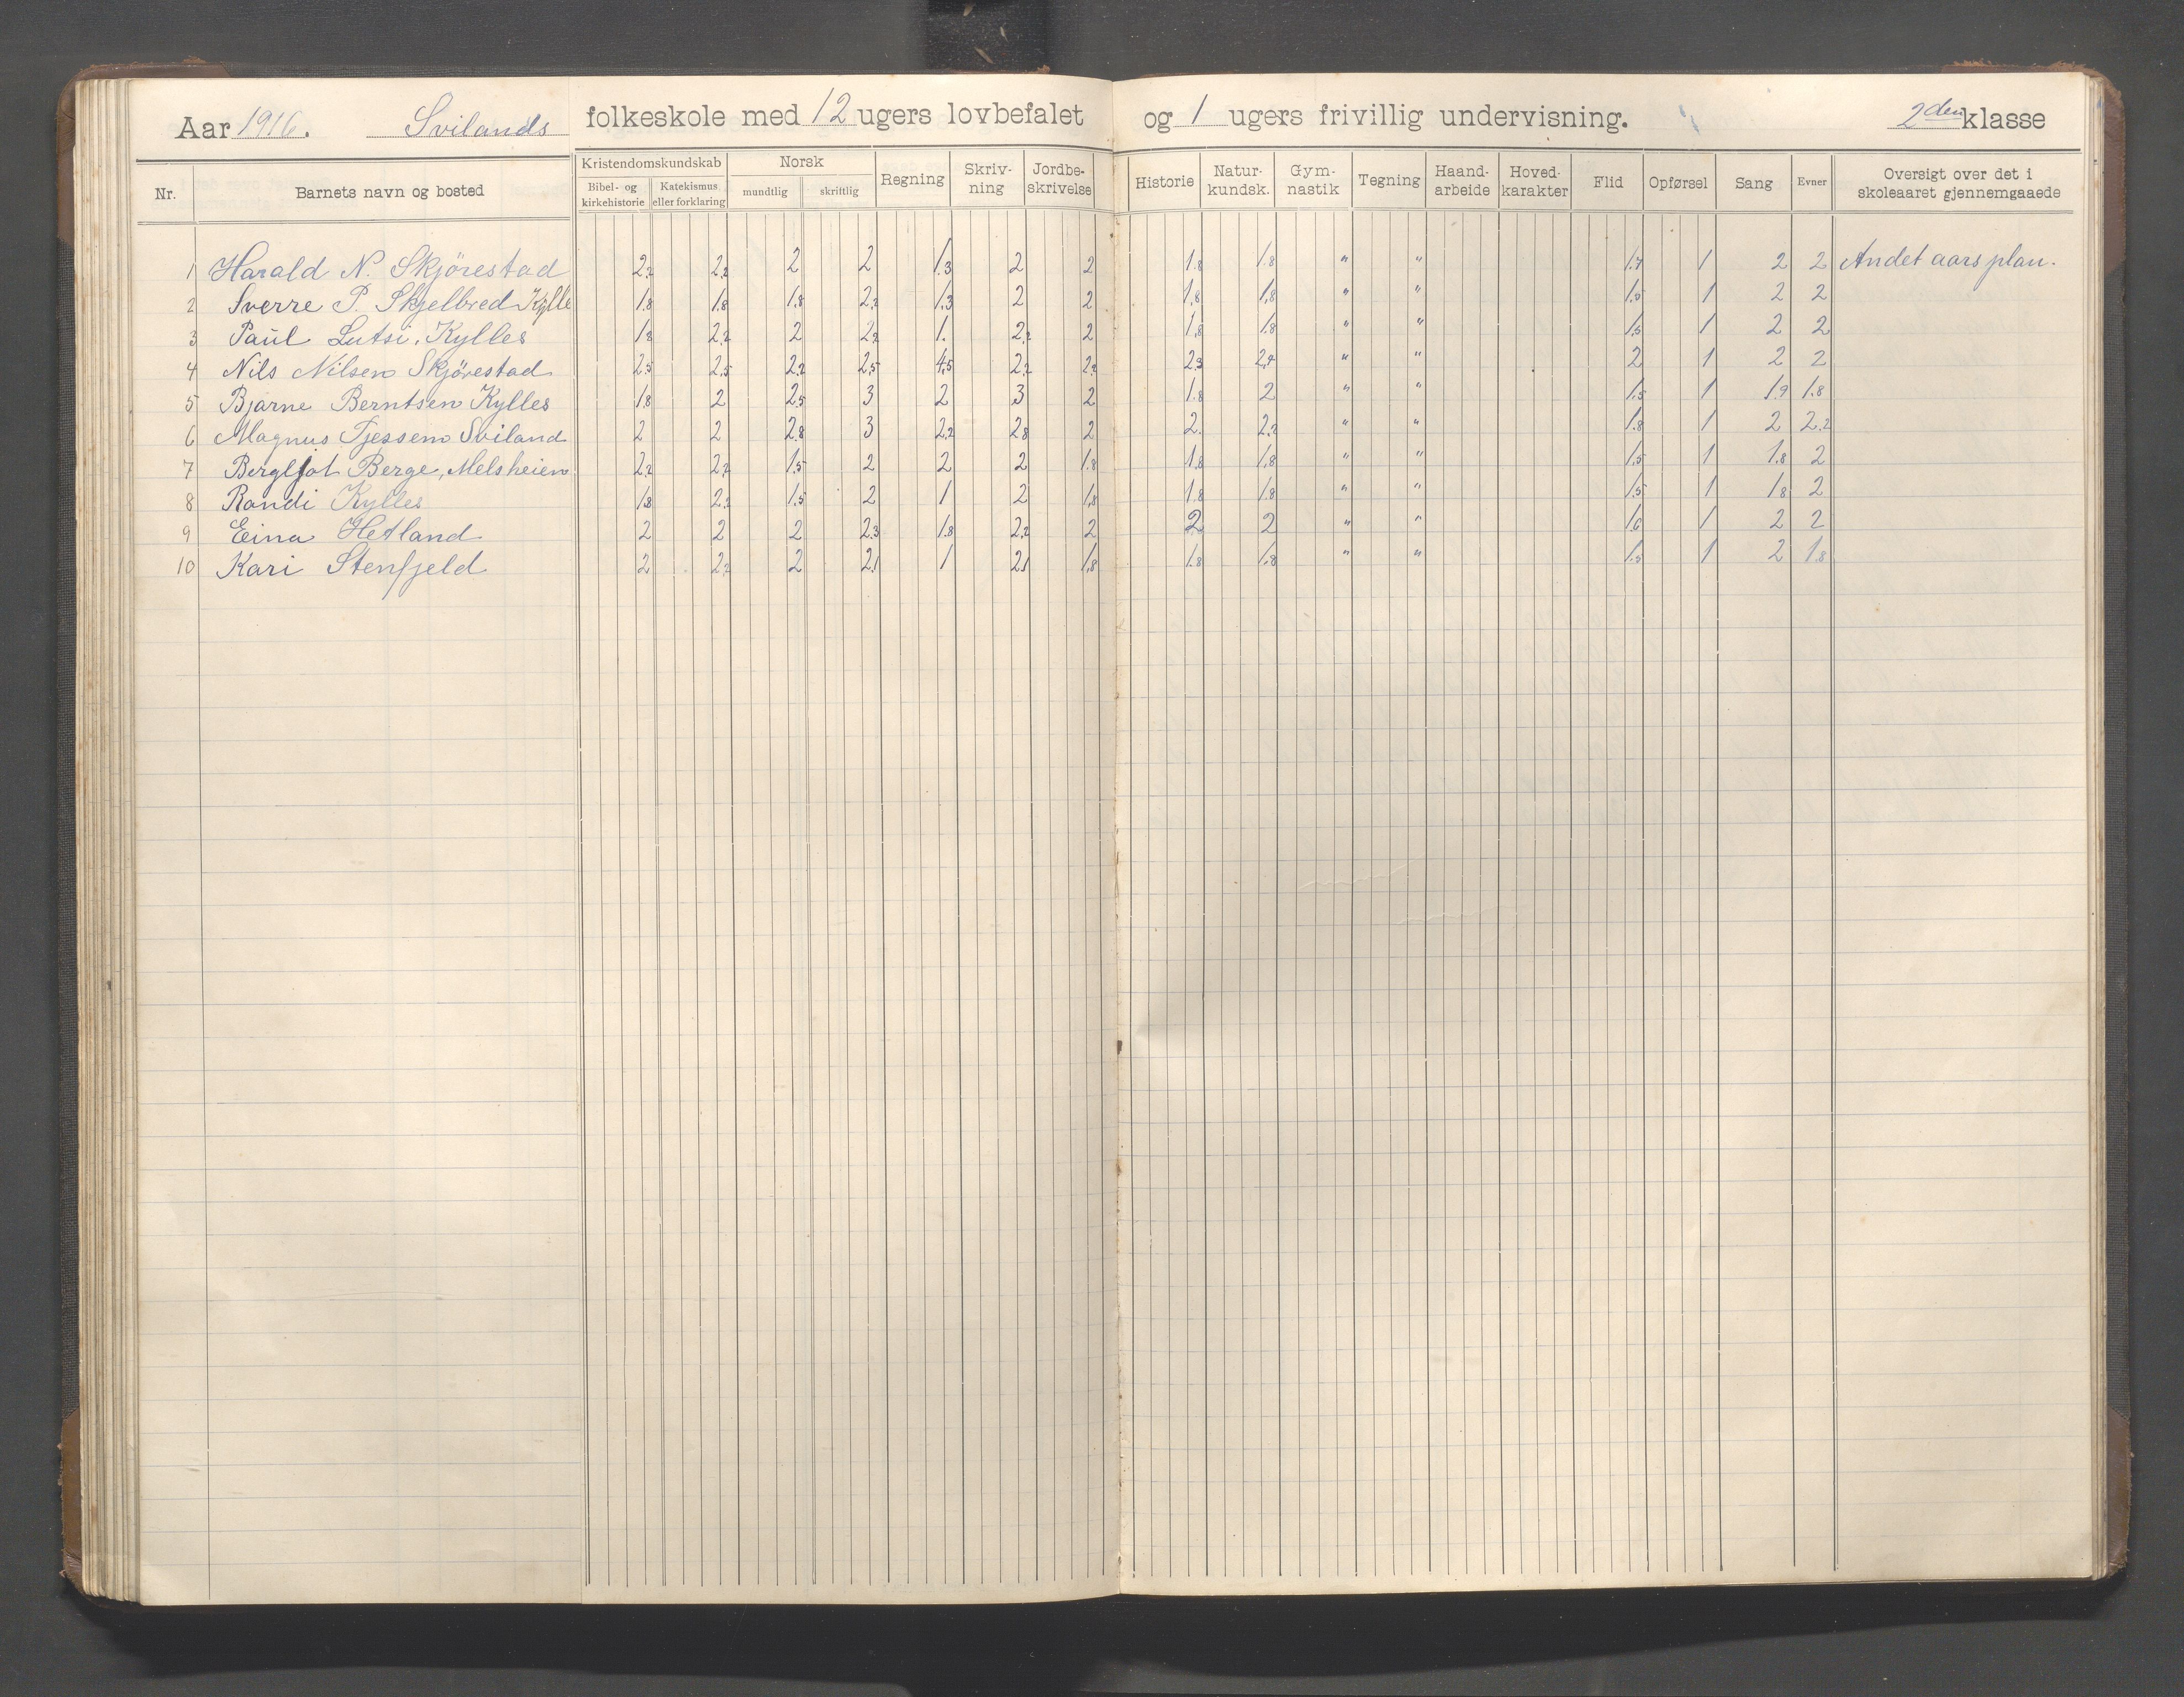 Aar 1916. Svilands folkeskole med 12 ugers lovbefalet og 1 ugers frivillig undervisning. 2den klasse
Nr. Barnets navn og bosted Kristendomskundskab Bibel- og kirkehistorie Katekismus eller forklaring Norsk mundtlig skriftlig Regning Skriv-ning Jordbe-skrivelse Historie Natur-kundsk. Gym-nastik Tegning Haand-arbeide Hoved-karakter Flid Opførsel Sang Evner Oversigt over det i skoleaaret gjennemgaaede
1 Harald N. Skjörestad 2,2 2,2 2 2 1.3 2 2 1.8 1.8 " " 1.7 1 2 2 Andet aars plan.
2 Sverre P. Skjelbred Kylle 1.8 1.8 1.8 2,2 1.3 2 2 1,8 1,8 " " 1.5 1 2 2
3 Paul Lutsi, Kylles 1.8 2,2 2 2,2 1. 2,2 2 1,8 1.8 " " 1,5 1 2 2
4 Nils Nilsen Skjörestad 2,5 2,5 2,2 2,5 4,5 2,2 2,2 2,3 2,4 " " 2 1 2 2
5 Bjarne Berntsen Kylles 1.8 2 2,5 3 2 3 2 1.8 2 " " 1.5 1 1.9 1.8
6 Magnus Tjessem Sviland 2 2 2.8 3 2,2 2.8 2 2. 2,2 " " 1.8 1 2 2.2
7 Bergljot Berge, Melsheien 2,2 2,2 1.5 2 2 2 1.8 1.8 1,8 " " 1,5 1 1.8 2
8 Randi Kylles 1.8 2,2 1.5 2 1 2 1,8 1,8 1.8 " " 1.5 1 1.8 2
9 Eina Hetland 2 2 2 2.3 1.8 2,2 2 2 2 " " 1.6 1 2 2
10 Kari Stenfjeld 2 2,2 2 2,1 1 2,1 1,8 1.8 1.8 " " 1.5 1 2 1.8